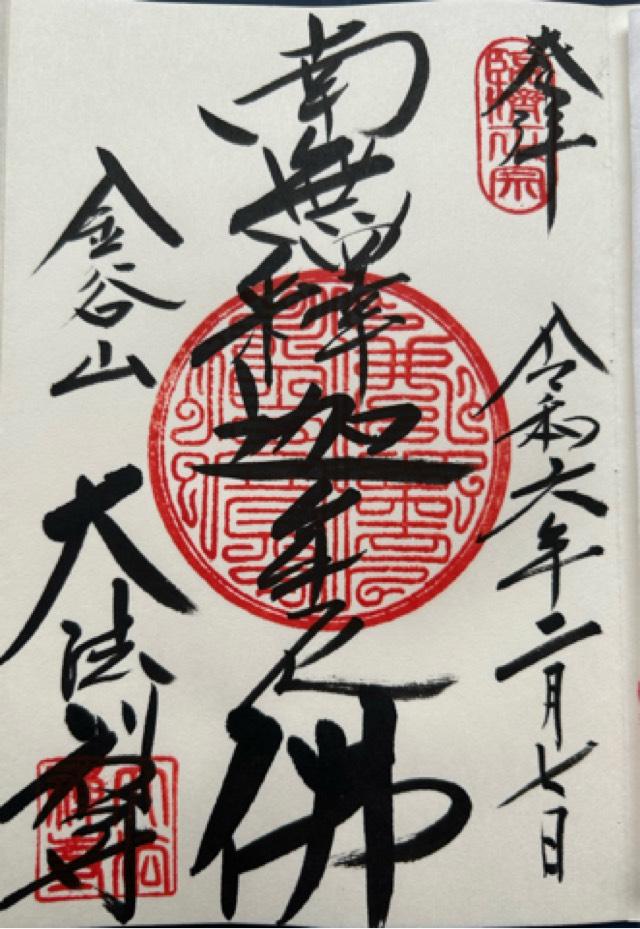 奉拝
臨濟正宗
令和六年二月七日
南無釋迦牟尼佛
金谷山
大法